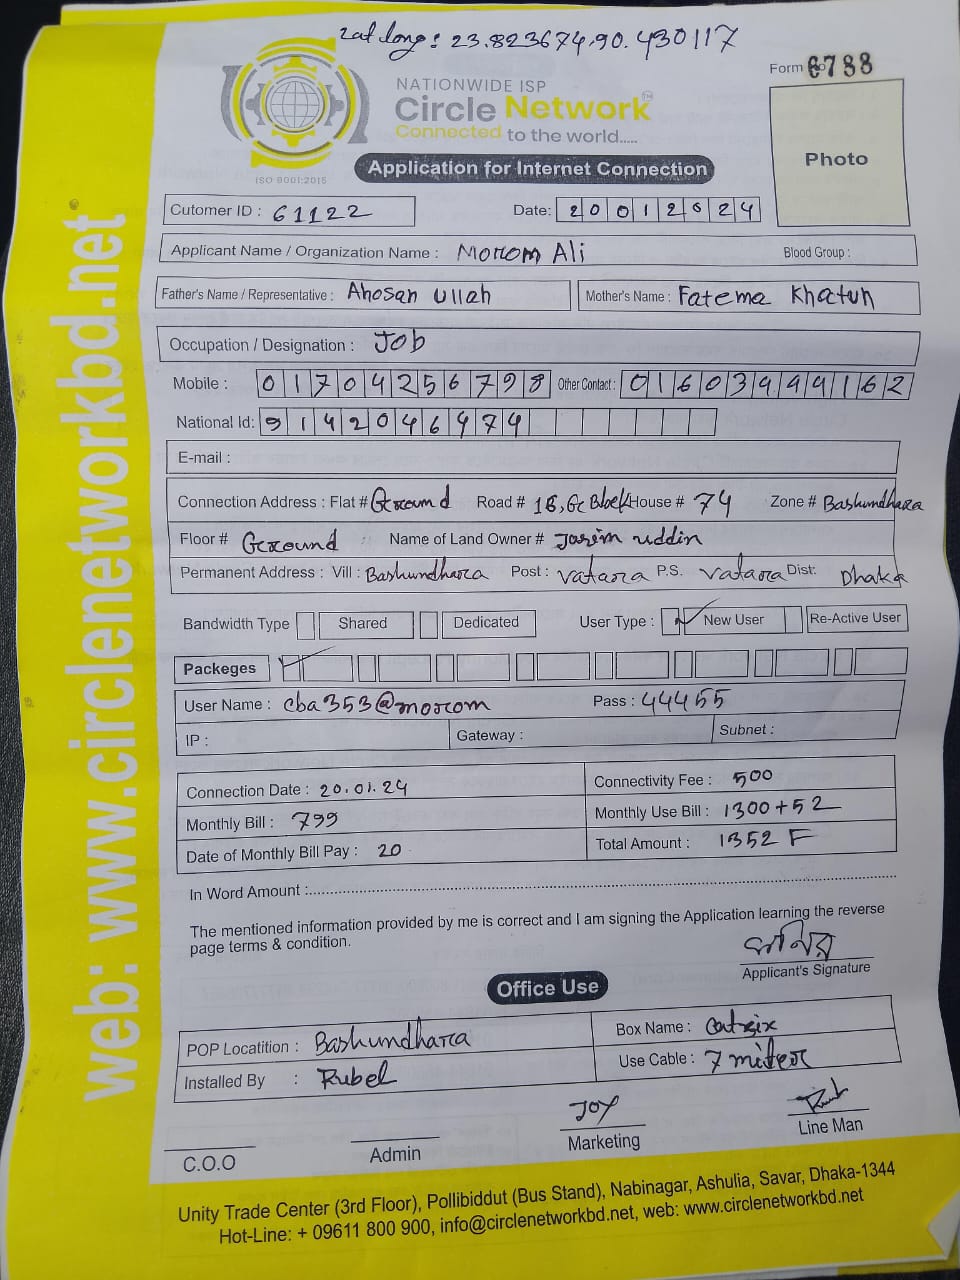 Lat long: 23.823674,90.430117
Form No 6788
NATIONWIDE ISP
Circle Network TM
Connected to the world.....
ISO 9001:2015
Application for Internet Connection
Photo
Cutomer ID : 61122 Date: 20012024
Applicant Name / Organization Name : Morom Ali Blood Group :
Father's Name / Representative : Ahosan Ullah Mother's Name : Fatema Khatun
Occupation / Designation : Job
Mobile : 01704256798 Other Contact : 01603449162
National Id: 9142046474
E-mail :
Connection Address : Flat # Ground Road # 16, G Block House # 74 Zone # Bashundhara
Floor # Ground Name of Land Owner # Jasim uddin
Permanent Address : Vill : Bashundhara Post : Vatara P.S. Vatara Dist: Dhaka
Bandwidth Type Shared Dedicated User Type : New User Re-Active User
Packeges
User Name : cba353@morom Pass : 44455
IP : Gateway : Subnet :
Connection Date : 20.01.24 Connectivity Fee : 500
Monthly Bill : 799 Monthly Use Bill : 1300+52
Date of Monthly Bill Pay : 20 Total Amount : 1352 F
In Word Amount :
The mentioned information provided by me is correct and I am signing the Application learning the reverse
page terms & condition.
Applicant's Signature
Office Use
POP Locatition : Bashundhara Box Name :
Installed By : Rubel Use Cable : 7 miter
Joy
C.O.O Admin Marketing Line Man
Unity Trade Center (3rd Floor), Pollibiddut (Bus Stand), Nabinagar, Ashulia, Savar, Dhaka-1344
Hot-Line: + 09611 800 900, info@circlenetworkbd.net, web: www.circlenetworkbd.net
web: www.circlenetworkbd.net